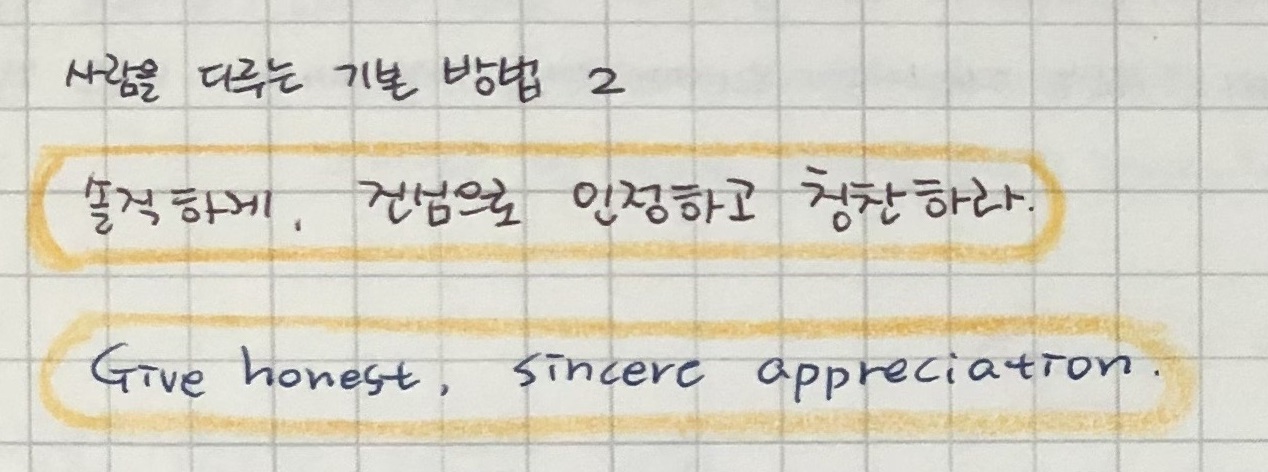 사람을 다루는 기본 방법 2
솔직하게, 진심으로 인정하고 칭찬하라.
Give honest, sincere appreciation.